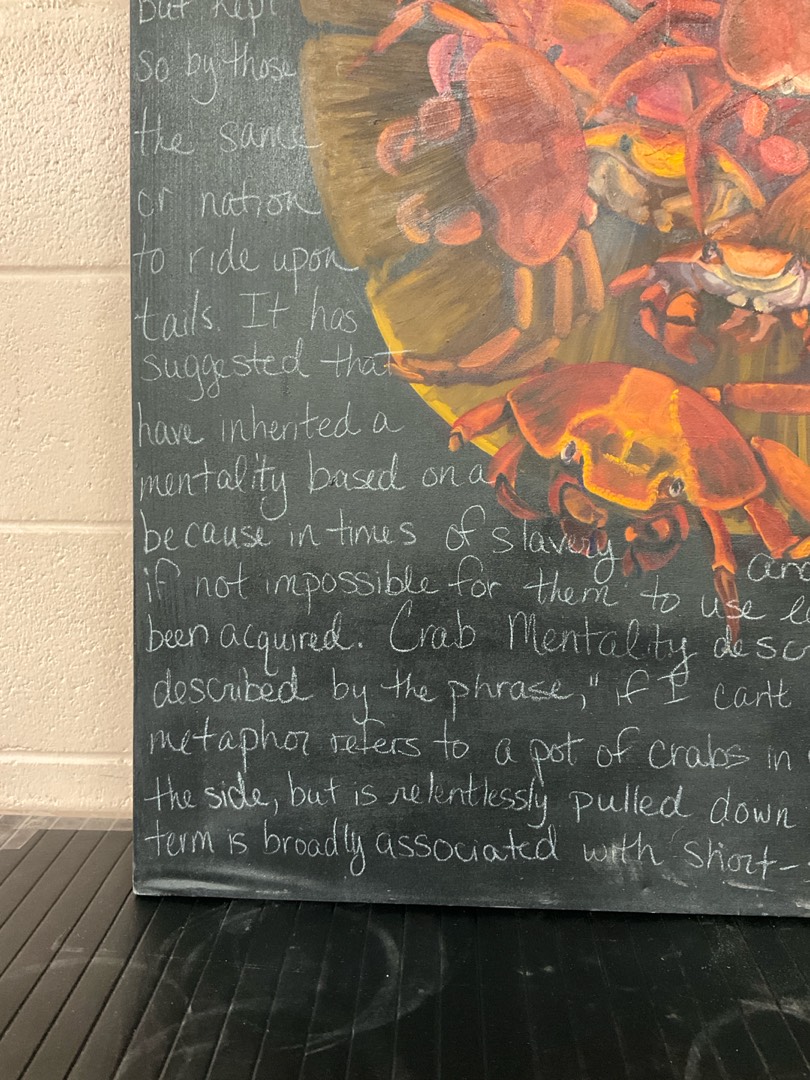 but kept
so by those
the same
or nation
to ride upon
tails. It has
suggested that
have inherited a
mentality based on a
because in times of slavery
and
if not impossible for them to use
been acquired. Crab Mentality
described by the phrase," if I can't
metaphor refers to a pot of crabs in
the side, but is relentlessly pulled down
term is broadly associated with short-